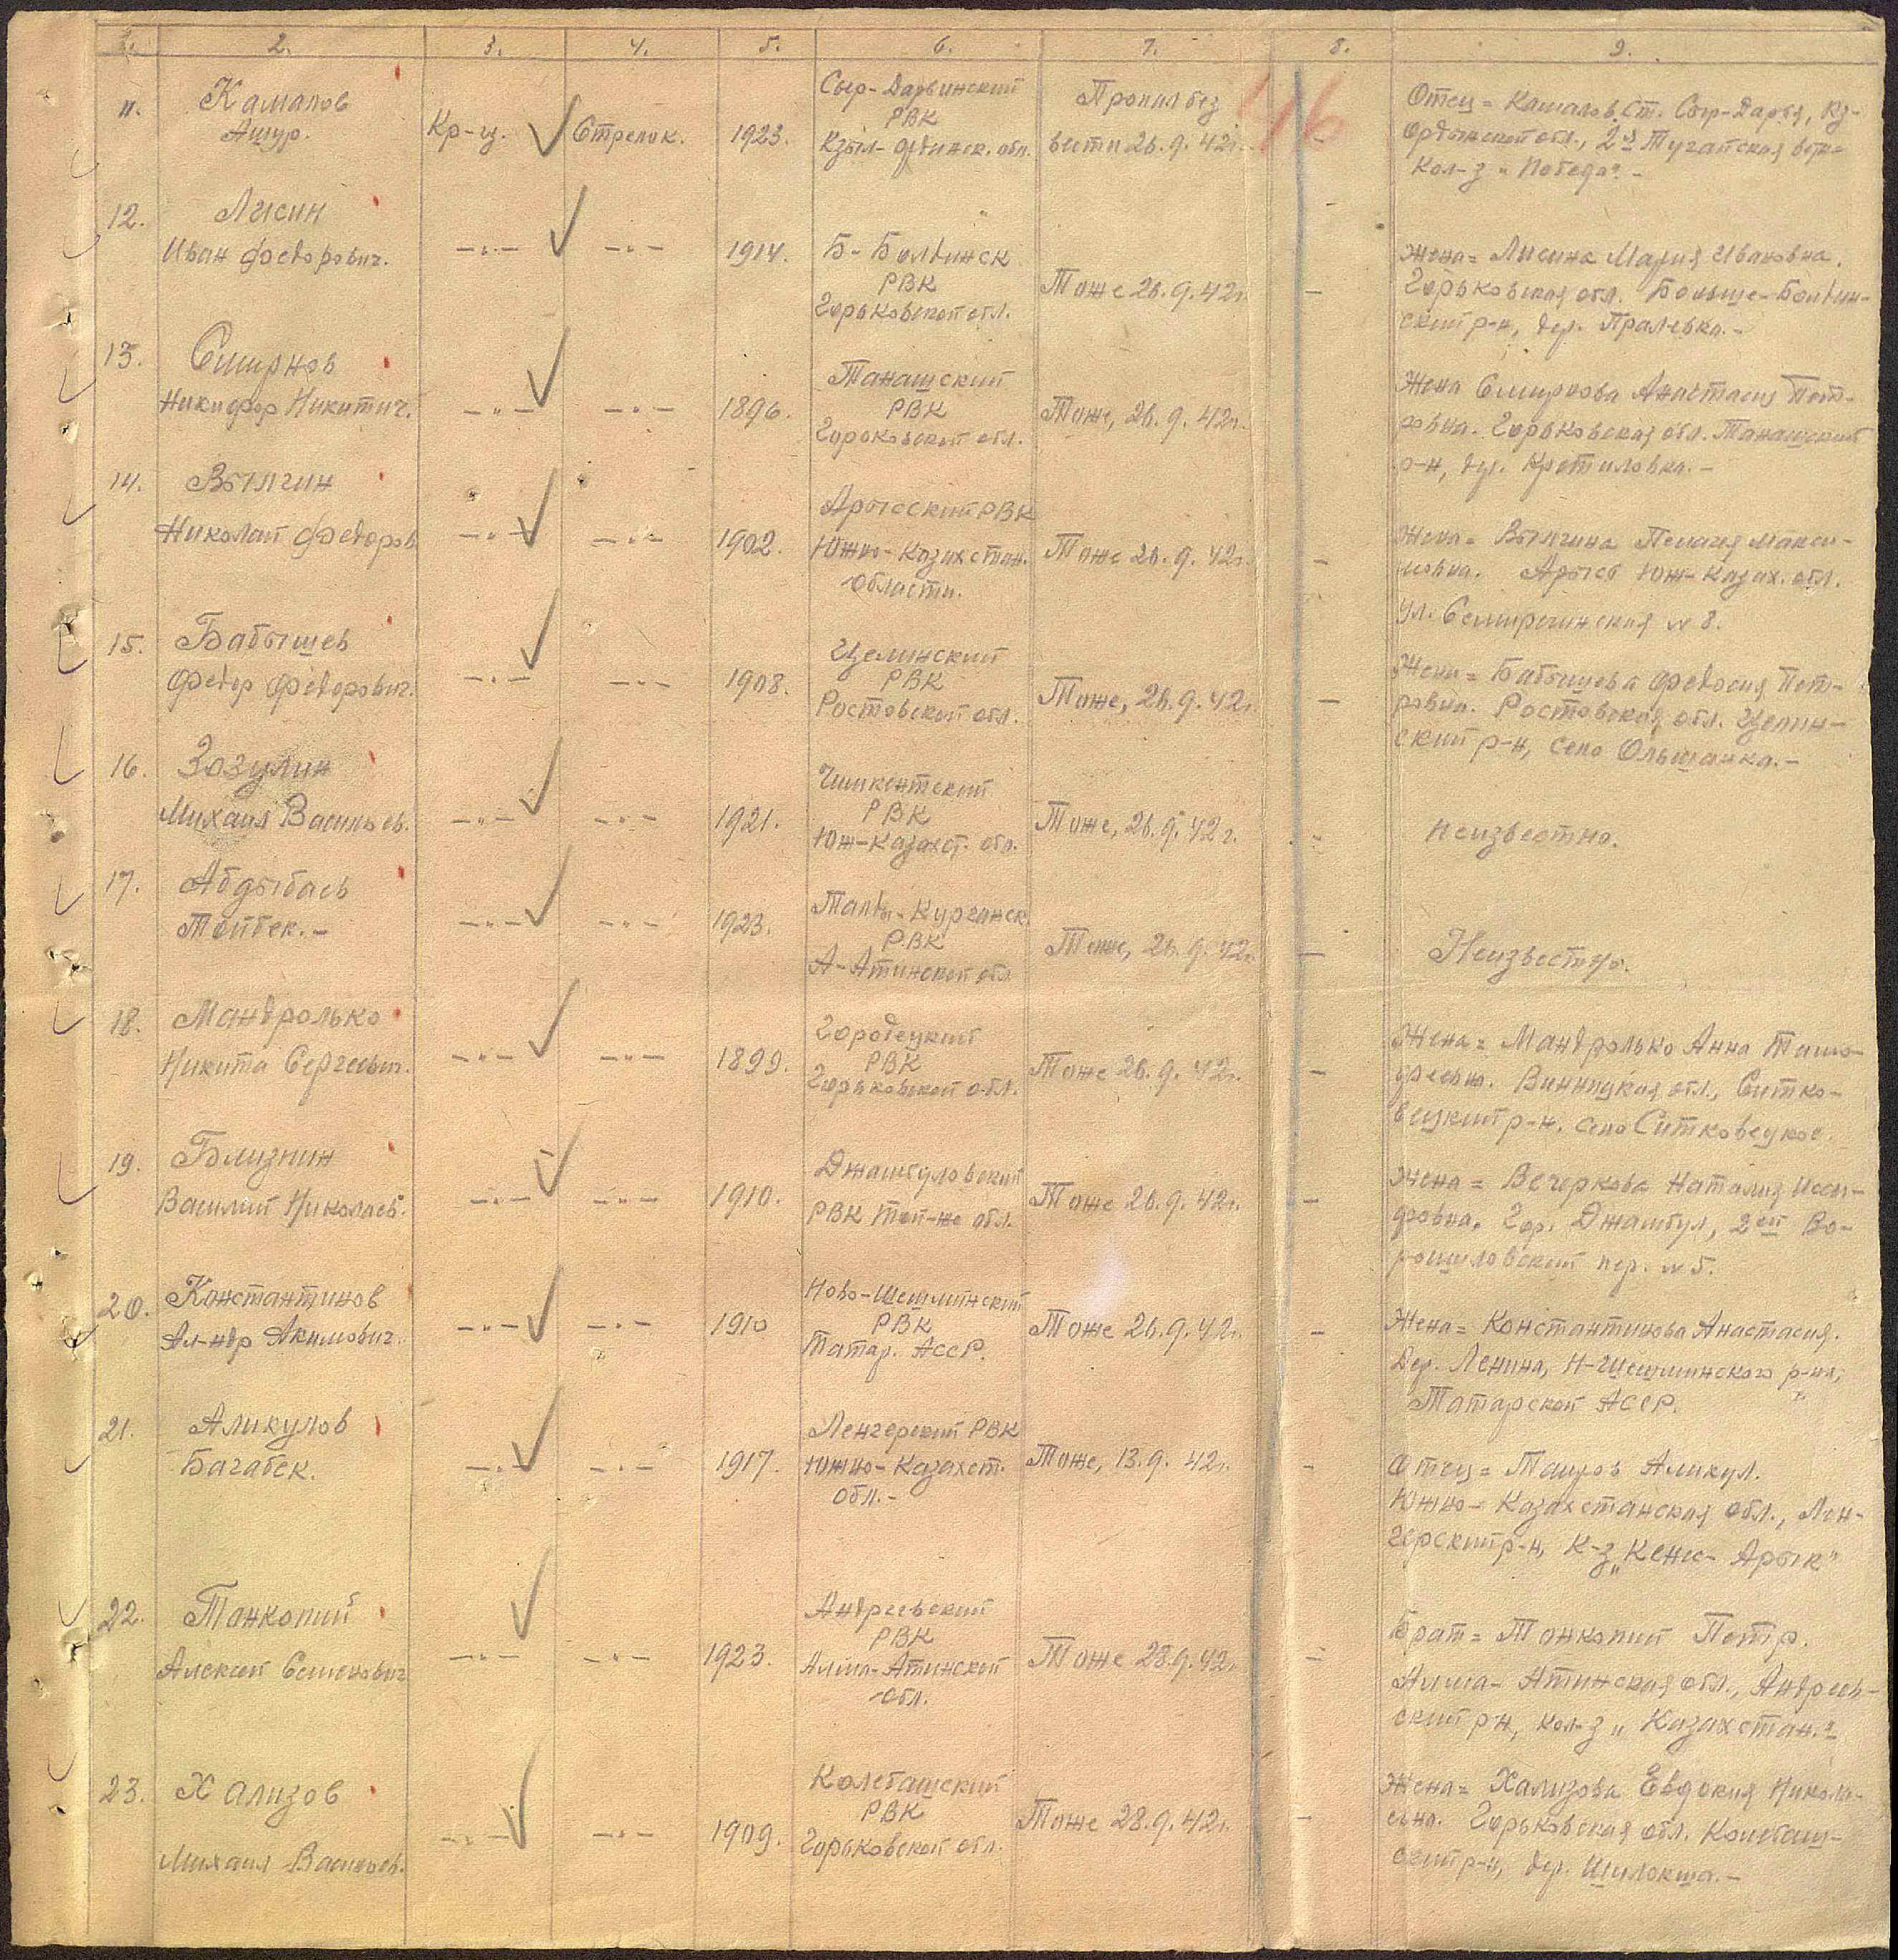 1. 2. 3. 4. 5. 6. 7. 8. 9.
11. Камалов
Ашур.
Кр-ц. Стрелок. 1923.
Сыр-Дарьинский
РВК
Кзыл-Ординск. обл.
Пропал без
вести 26.9.42г. -
Отец = Камалов. Ст. Сыр-Дарья, Кз-
Ординской обл., 2я
Кол-з "Победа". -
12. Лисин
Иван Федорович.
—"— —"— 1914.
Б-Болдинск
РВК
Горьковской обл.
Тоже 26.9.42г. —
Жена = Лисина Мария Ивановна.
Горьковская обл. Больше-Болдин-
ский р-н, дер. Пралевка. -
13. Смирнов
Никифор Никитич.
—"— —"— 1896.
Танашский
РВК
Горьковской обл.
Тоже, 26.9.42г.
Жена Смирнова Анастасия Пет-
ровна. Горьковская обл. Танашский
р-н, дер. Кретиловка. -
14. Вылгин
Николай Федоров
—"— —"— 1902.
Арысский РВК
Южно-Казахстан.
области.
Тоже 26.9.42г. —
Жена = Вылгина Пелагея Макси-
мовна. Арысь Юж-Казах. обл.
ул. Семиреченская № 8.
15. Бабышев
Федор Федорович.
—"— —"— 1908.
Целинский
РВК
Ростовской обл.
Тоже, 26.9.42г. —
Жена = Бабышева Федосия Пет-
ровна. Ростовская обл. Целин-
ский р-н, село Ольшанка. -
16. Зозулин
Михаил Васильев.
—"— —"— 1921.
Чимкентский
РВК
Юж-Казахст. обл.
Тоже, 26.9.42г. -
Неизвестно.
17. Абдыбаев
Тойбек. -
—"— —"— 1923.
Талды-Курганск.
РВК
А-Атинской обл.
Тоже, 26.9.42г. —
Неизвестно.
18. Мандролько
Никита Сергеевич.
—"— —"— 1899.
Городецкий
РВК
Горьковской обл.
Тоже 26.9.42г. —
Жена = Мандролько Анна Тимо-
феевна. Винницкая обл., Ситко-
вецкий р-н. село Ситковецкое.
19. Близнин
Василий Николаев.
—"— —"— 1910.
Джамбуловский
РВК той-же обл.
Тоже 26.9.42г. —
Жена = Вечеркова Наталия Иоси-
фовна. Гор. Джамбул, 2ой Во-
рошиловский пер. № 5.
20. Константинов
Ал-ндр Акимович.
—"— —"— 1910
Ново-Шешминский
РВК
Татар. АССР.
Тоже 26.9.42г. —
Жена = Константинова Анастасия.
Дер. Ленина, Н-Шешминского р-на,
Татарской АССР.
21. Аликулов
Багабек.
—"— —"— 1917.
Ленгерский РВК
Южно-Казахст.
обл. -
Тоже, 13.9.42г. -
Отец = Таиров Аликул.
Южно-Казахстанская обл., Лен-
герский р-н, К-з "Кенес-Арык"
22. Танкопий
Алексей Семенович
—"— —"— 1923.
Андреевский
РВК
Алма-Атинской
обл.
Тоже 28.9.42г. —
Брат = Танкопий Петр.
Алма-Атинская обл., Андреев-
ский р-н, кол-з "Казахстан."
23. Хализов
Михаил Васильев.
—"— —"— 1909.
Колебашский
РВК
Горьковской обл.
Тоже 28.9.42г. —
Жена = Хализова Евдокия Никола-
евна. Горьковская обл. Колебаш-
ский р-н, дер. Шилокша. -